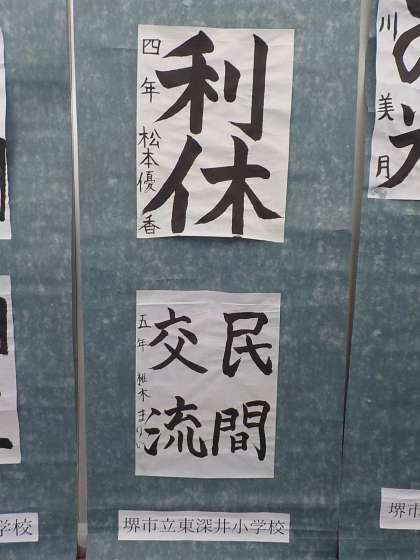 利休
四年 松本優香
民間
交流
五年 椎木まりい
堺市立東深井小学校
川美月
学校
堺市